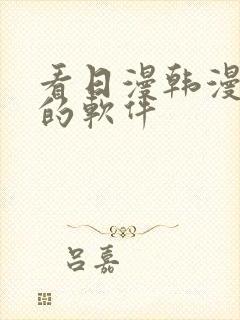 看日漫韩漫
的軟件
吕嘉